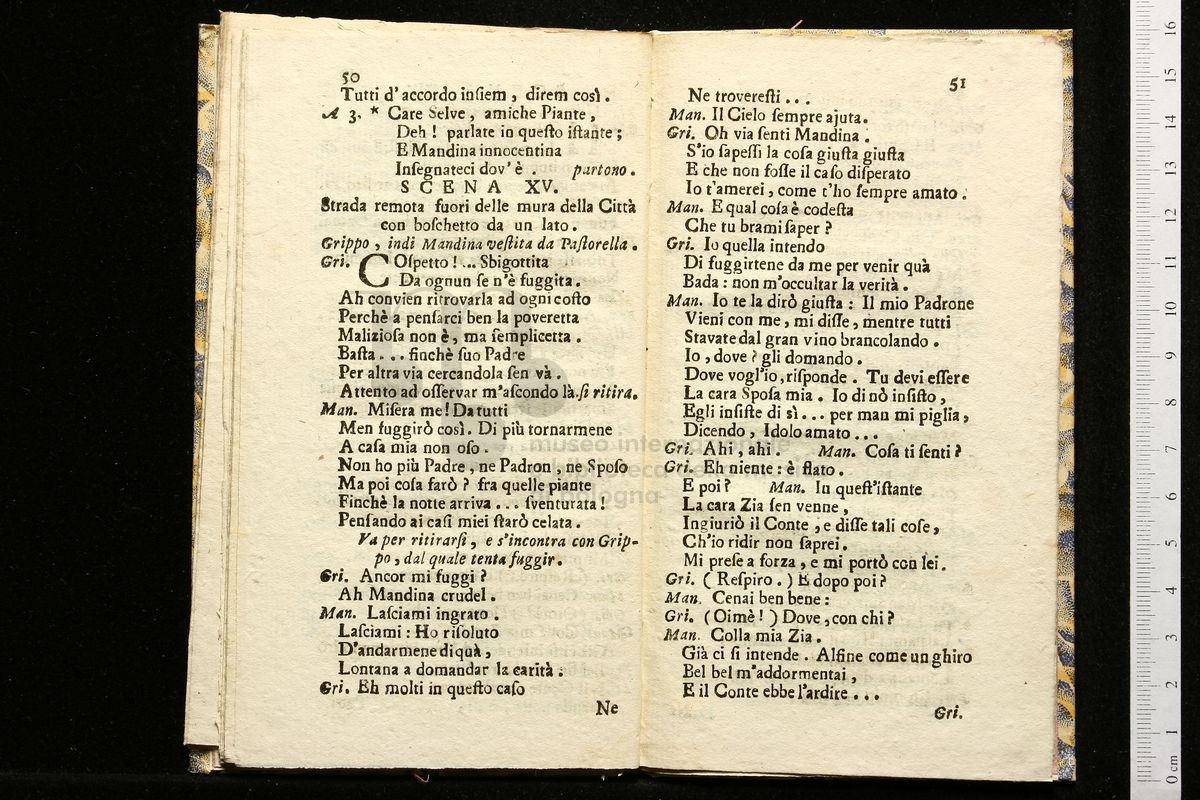 50
Tutti d'accordo inſiem , direm così .
A 3. * Care Selve , amiche Piante ,
Deh ! parlate in queſto iſtante ;
E Mandina innocentina
Inſegnateci dov'è . partono .
SCENA XV.
Strada remota fuori delle mura della Città
con boſchetto da un lato .
Grippo , indi Mandina veſtita da Paſtorella .
Gri. COſpetto ! ... Sbigottita
Da ognun ſe n'è fuggita .
Ah convien ritrovarla ad ogni coſto
Perchè a penſarci ben la poveretta
Malizioſa non è , ma ſemplicetta .
Baſta . . . finchè ſuo Padre
Per altra via cercandola ſen và .
Attento ad oſſervar m'aſcondo là. ſi ritira.
Man. Miſera me ! Da tutti
Men fuggirò così . Di più tornarmene
A caſa mia non oſo .
Non ho più Padre , ne Padron , ne Spoſo
Ma poi coſa farò ? fra quelle piante
Finchè la notte arriva . . . ſventurata !
Penſando ai caſi miei ſtarò celata .
Va per ritirarſi , e s'incontra con Grip-
po , dal quale tenta fuggir .
Gri. Ancor mi fuggi ?
Ah Mandina crudel .
Man. Laſciami ingrato .
Laſciami : Ho riſoluto
D'andarmene di quà ,
Lontana a domandar la carità .
Gri. Eh molti in queſto caſo
Ne
51
Ne trovereſti . . .
Man. Il Cielo ſempre ajuta.
Gri. Oh via ſenti Mandina .
S'io ſapeſſi la coſa giuſta giuſta
E che non foſſe il caſo diſperato
Io t'amerei , come t'ho ſempre amato .
Man. E qual coſa è codeſta
Che tu brami ſaper ?
Gri. Io quella intendo
Di fuggirtene da me per venir quà
Bada : non m'occultar la verità .
Man. Io te la dirò giuſta : Il mio Padrone
Vieni con me , mi diſſe , mentre tutti
Stavate dal gran vino brancolando .
Io , dove ? gli domando .
Dove vogl'io , riſponde . Tu devi eſſere
La cara Spoſa mia . Io di nò inſiſto ,
Egli inſiſte di sì . . . per man mi piglia ,
Dicendo , Idolo amato . . .
Gri. Ahi , ahi . Man. Coſa ti ſenti ?
Gri. Eh niente : è ſtato .
E poi ? Man. In queſt'iſtante
La cara Zia ſen venne ,
Ingiuriò il Conte , e diſſe tali coſe ,
Ch'io ridir non ſaprei.
Mi preſe a forza , e mi portò con lei.
Gri. ( Reſpiro . ) E dopo poi ?
Man. Cenai ben bene :
Gri. ( Oimè ! ) Dove , con chi ?
Man. Colla mia Zia .
Già ci ſi intende . Alfine come un ghiro
Bel bel m'addormentai ,
E il Conte ebbe l'ardire . . .
Gri.